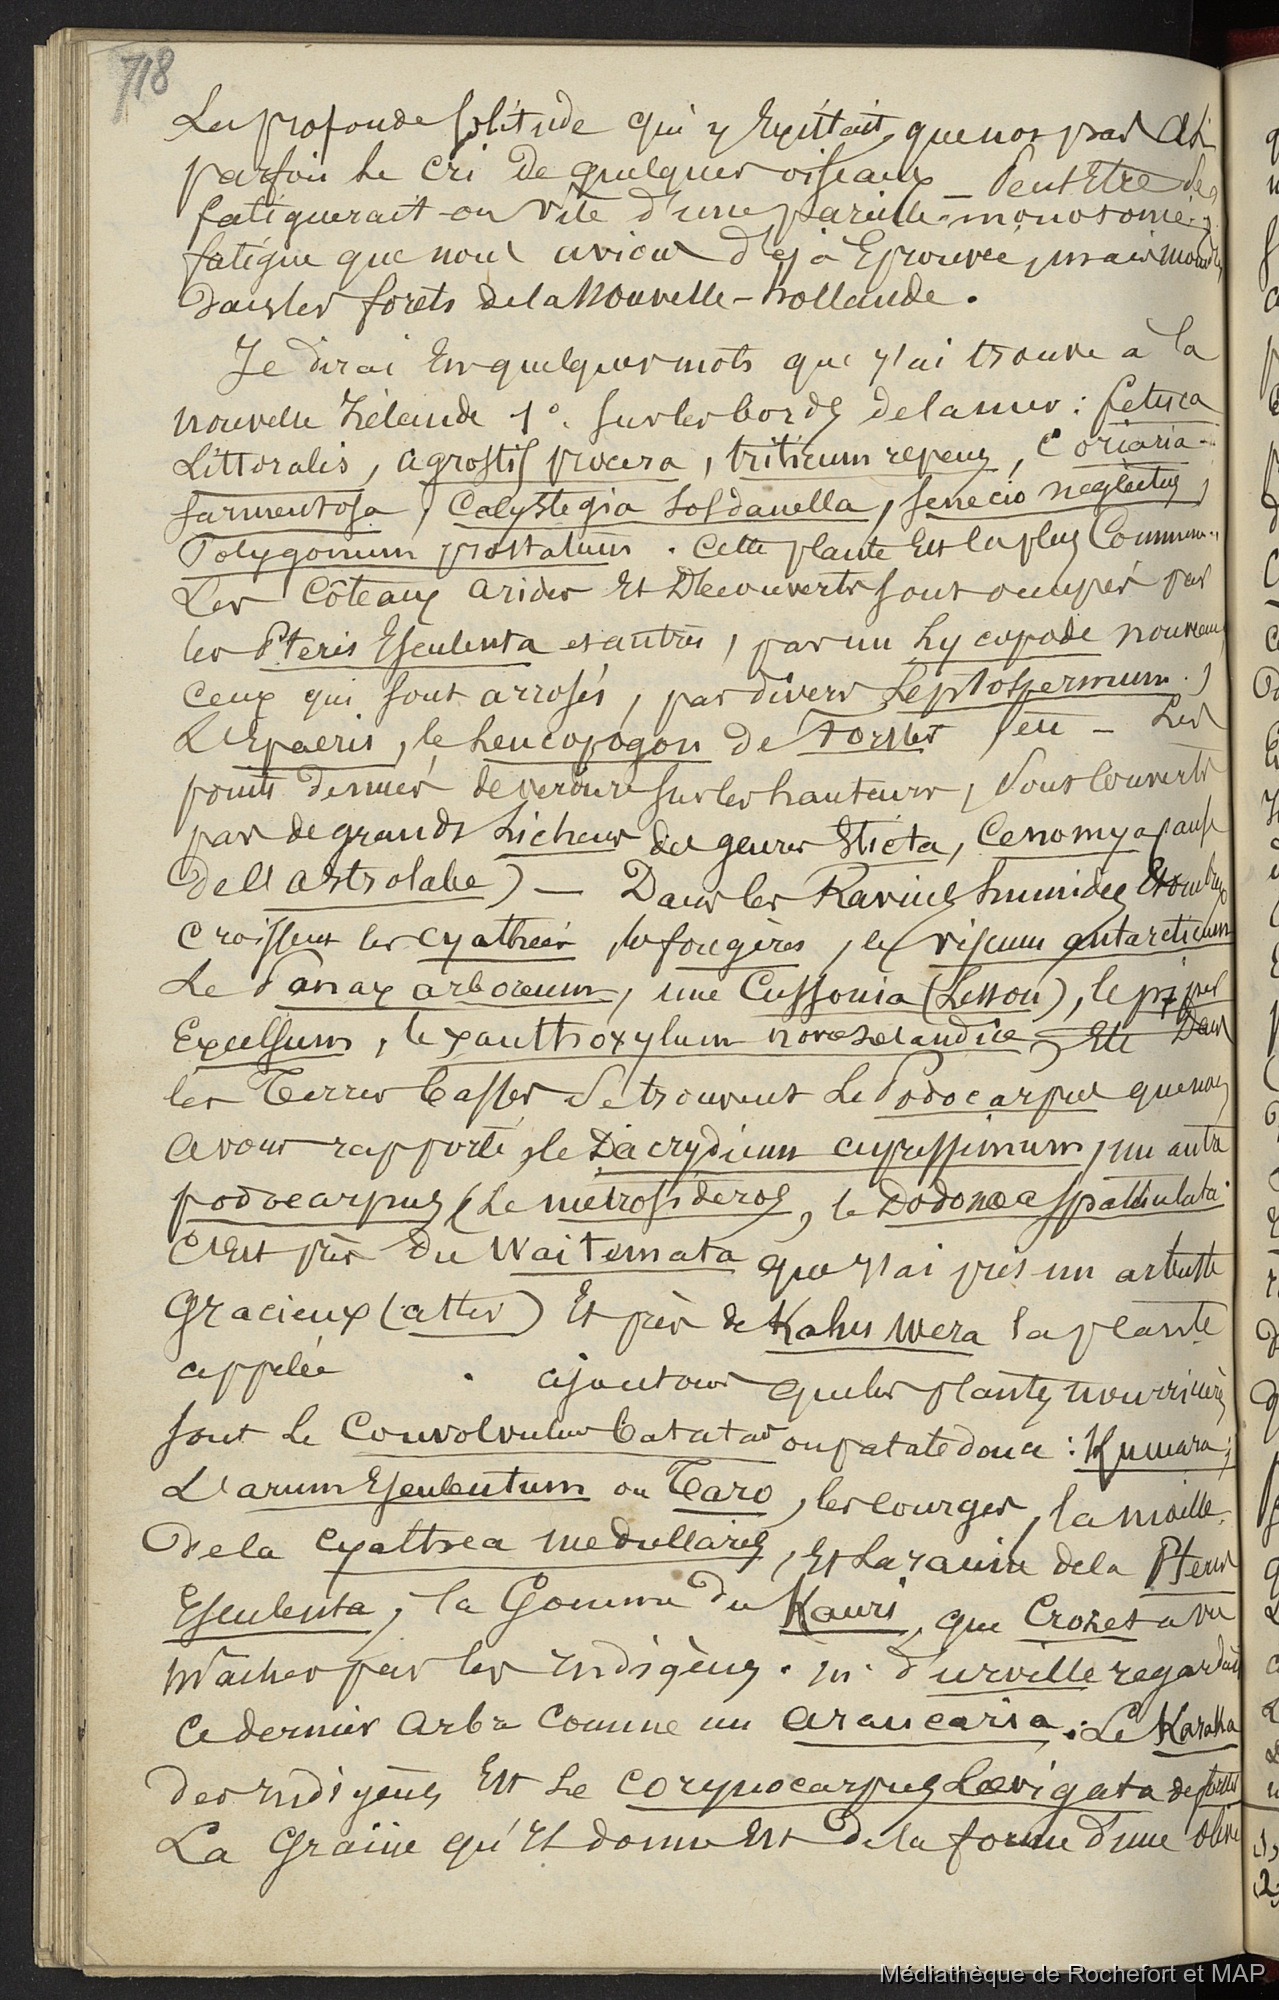 718
La profonde solitude qui y Existait, que non par
parfois le cri de quelques oiseaux _ Peut Etre se
fatiguerait-on vite d'une pareille monotomie
fatigue que nous avions déjà Eprouvée, mais moins
Dans les forets de la Nouvelle-hollande.
Je dirai En quelques mots que j'ai trouve a la
nouvelle Zélande 1°. sur les bords de la mer : fetuca
Littoralis, agrostis procera, triticum repens, Coriaria
sarmentosa, Calystegia Soldanella, senecio neglectus,
Polygonum prostatum. Cette plante Est la plus Commun..
Les Côteaux arides Et Decouverts sont occupés par
les Pteris Esculenta et autres, par un Lycopode nouveau
ceux qui sont arrosés, par divers Leptospermum.)
L'Epacris, le Leucopogon de Forster seu - Les
points denués de verdure sur les hauteurs, sont Couverts
par de grands Lichens des genres Sticta, Cenomya (anse
de l'astrolabe) — Dans les Ravins humides Et ombragés
Croissent les cyathées, les fougères, le viscum antarcticum
Le Panax arboreum, une Cussonia (Lesson), le piper
Excelsum, le xanthoxylum novæ zelandiæ, Etc Dans
les Terres basses se trouvent Le Podocarpus que nous
avons rapporté, le Dacrydium cupressimum, un autre
podocarpus (Le metrosideros, le Dodonæa spathulata
C'Est près du Waitemata que j'ai pris un arbuste
Gracieux (aster) Et près de Kahu Wera la plante
appelée . ajoutons que les plantes nourricières
sont le Convolvulus batatas ou patate douce : Kumara;
L'arum Esculentum ou Taro, les Courges, la moëlle
De la cyathea medullaris, Et la racine de la Pteris
Esculenta, la Gomme du Kauri, que Crozet a vu
Macher par les indigènes. M. d'urville regardait
Ce dernier Arbre Comme un araucaria. Le Karaka
des indigènes Est Le Corynocarpus Lævigata de forster
La Graine qu'Il donne Est de la forme d'une olive
Médiathèque de Rochefort et MAP